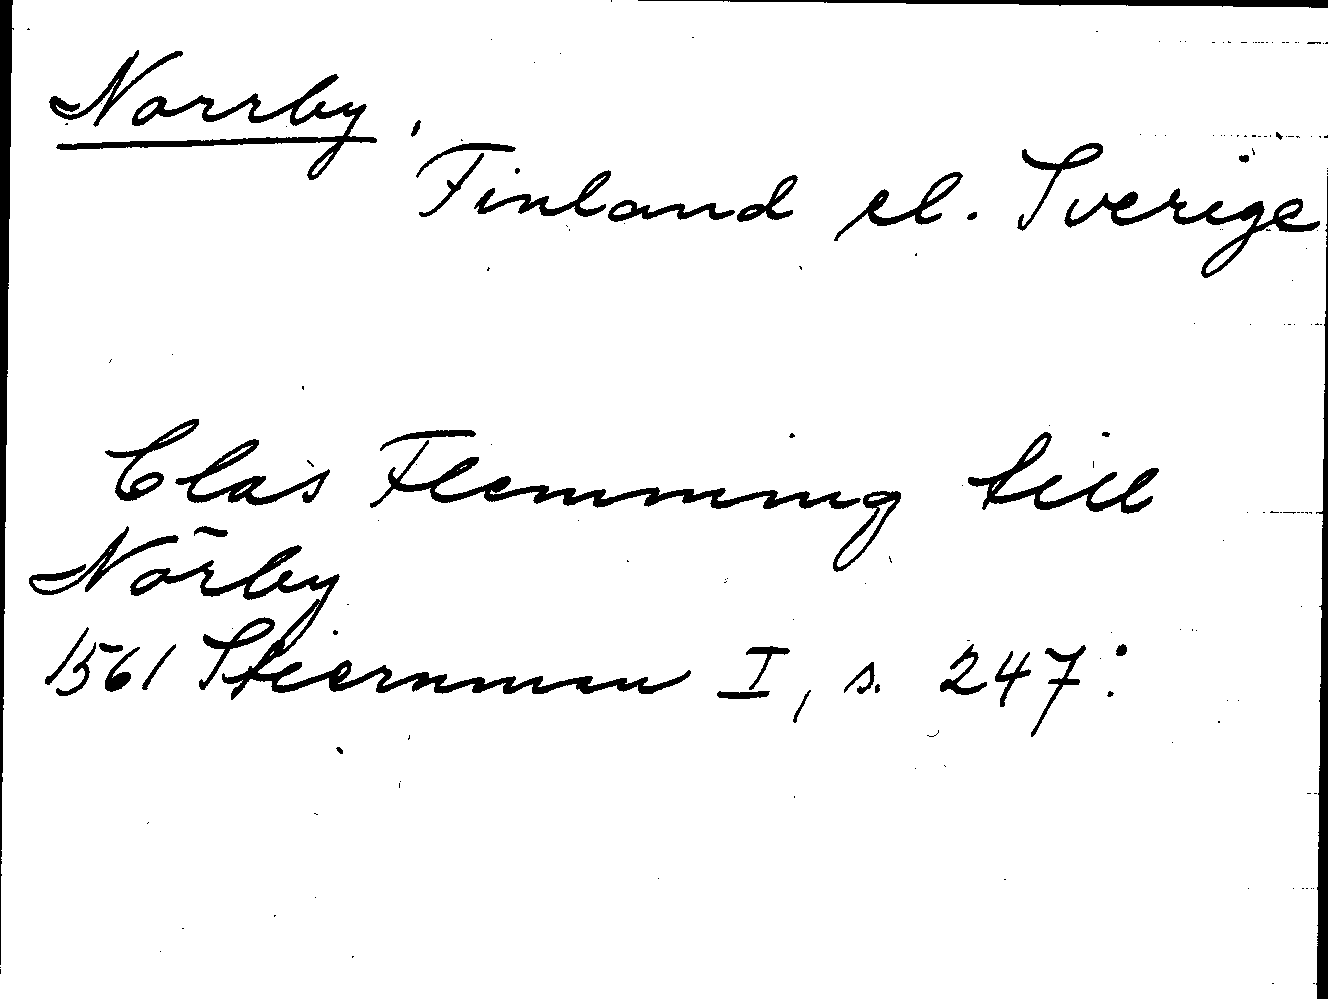 Norrby,
Finland el. Sverige
Clas Flemming till
Nörby
1561 Stiernman I, s. 247: